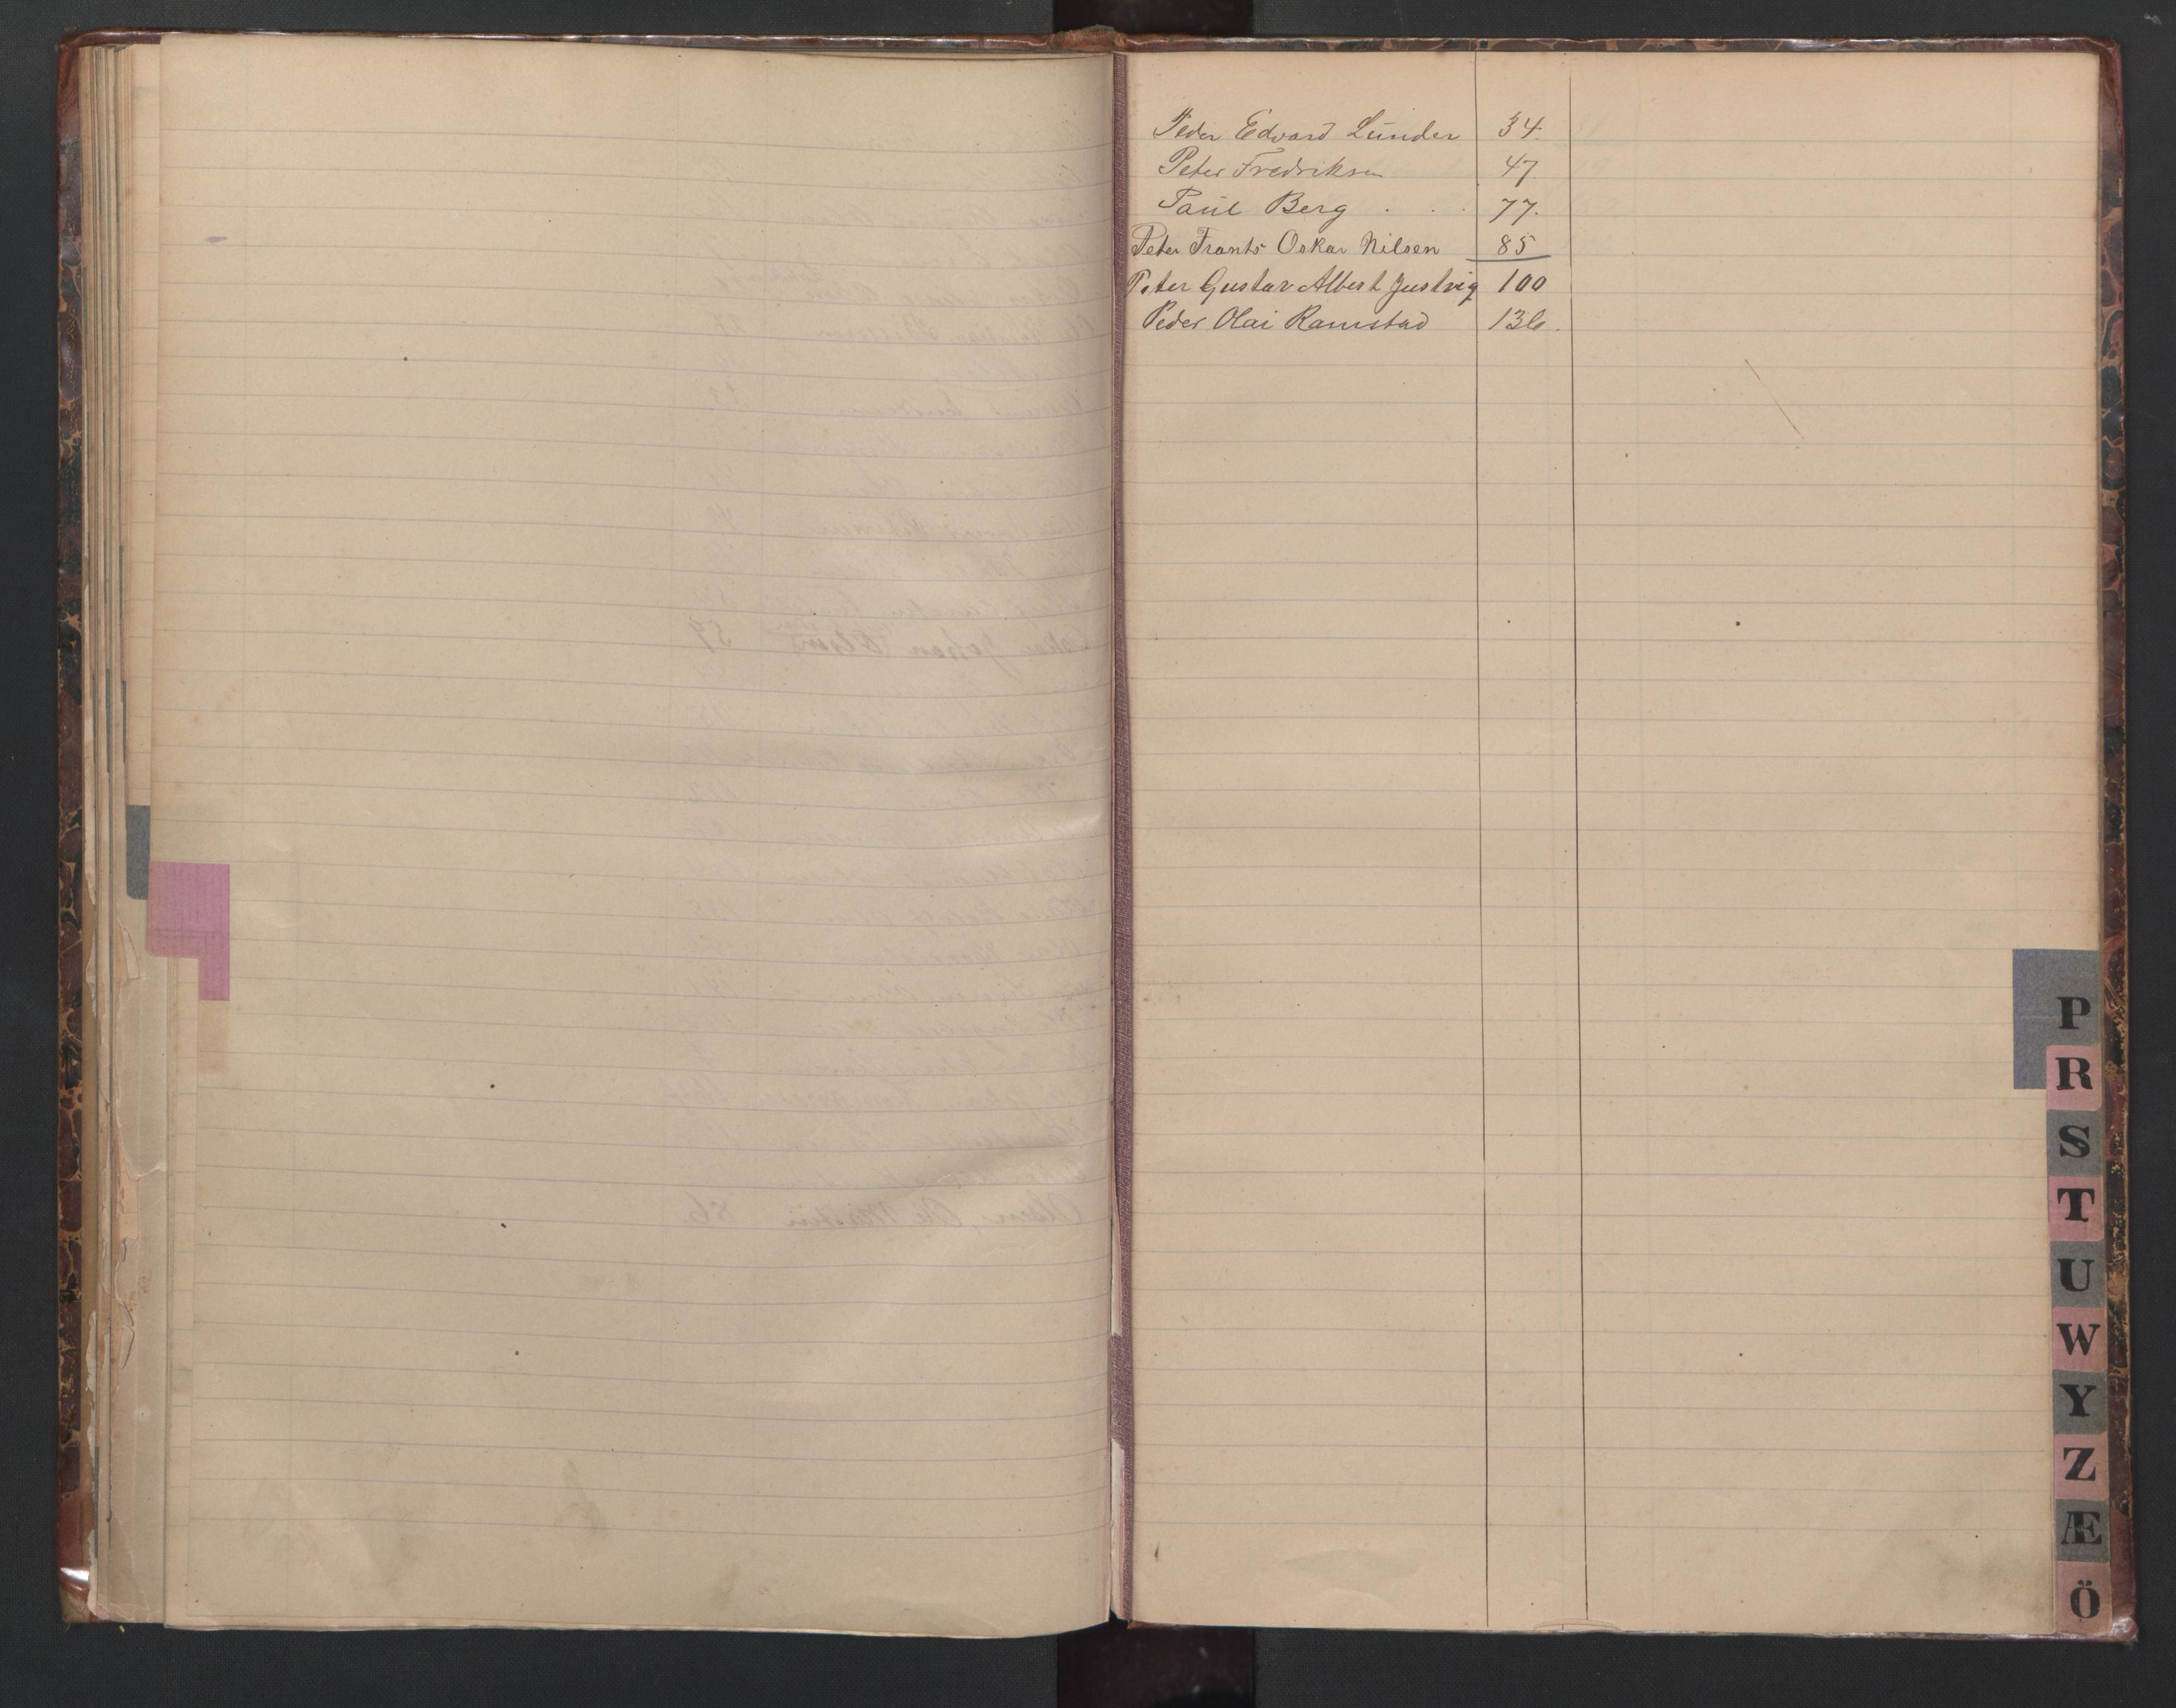 Peder Edvard Lunder 34.
Peter Fredriksen 47
Paul Berg . . . 77.
Peter Frants Oskar Nilsen 85
Peter Gustav Albert Justvig 100
Peder Olai Ramstad 136.
P
R
S
T
U
W
Y
Z
Æ
Ö